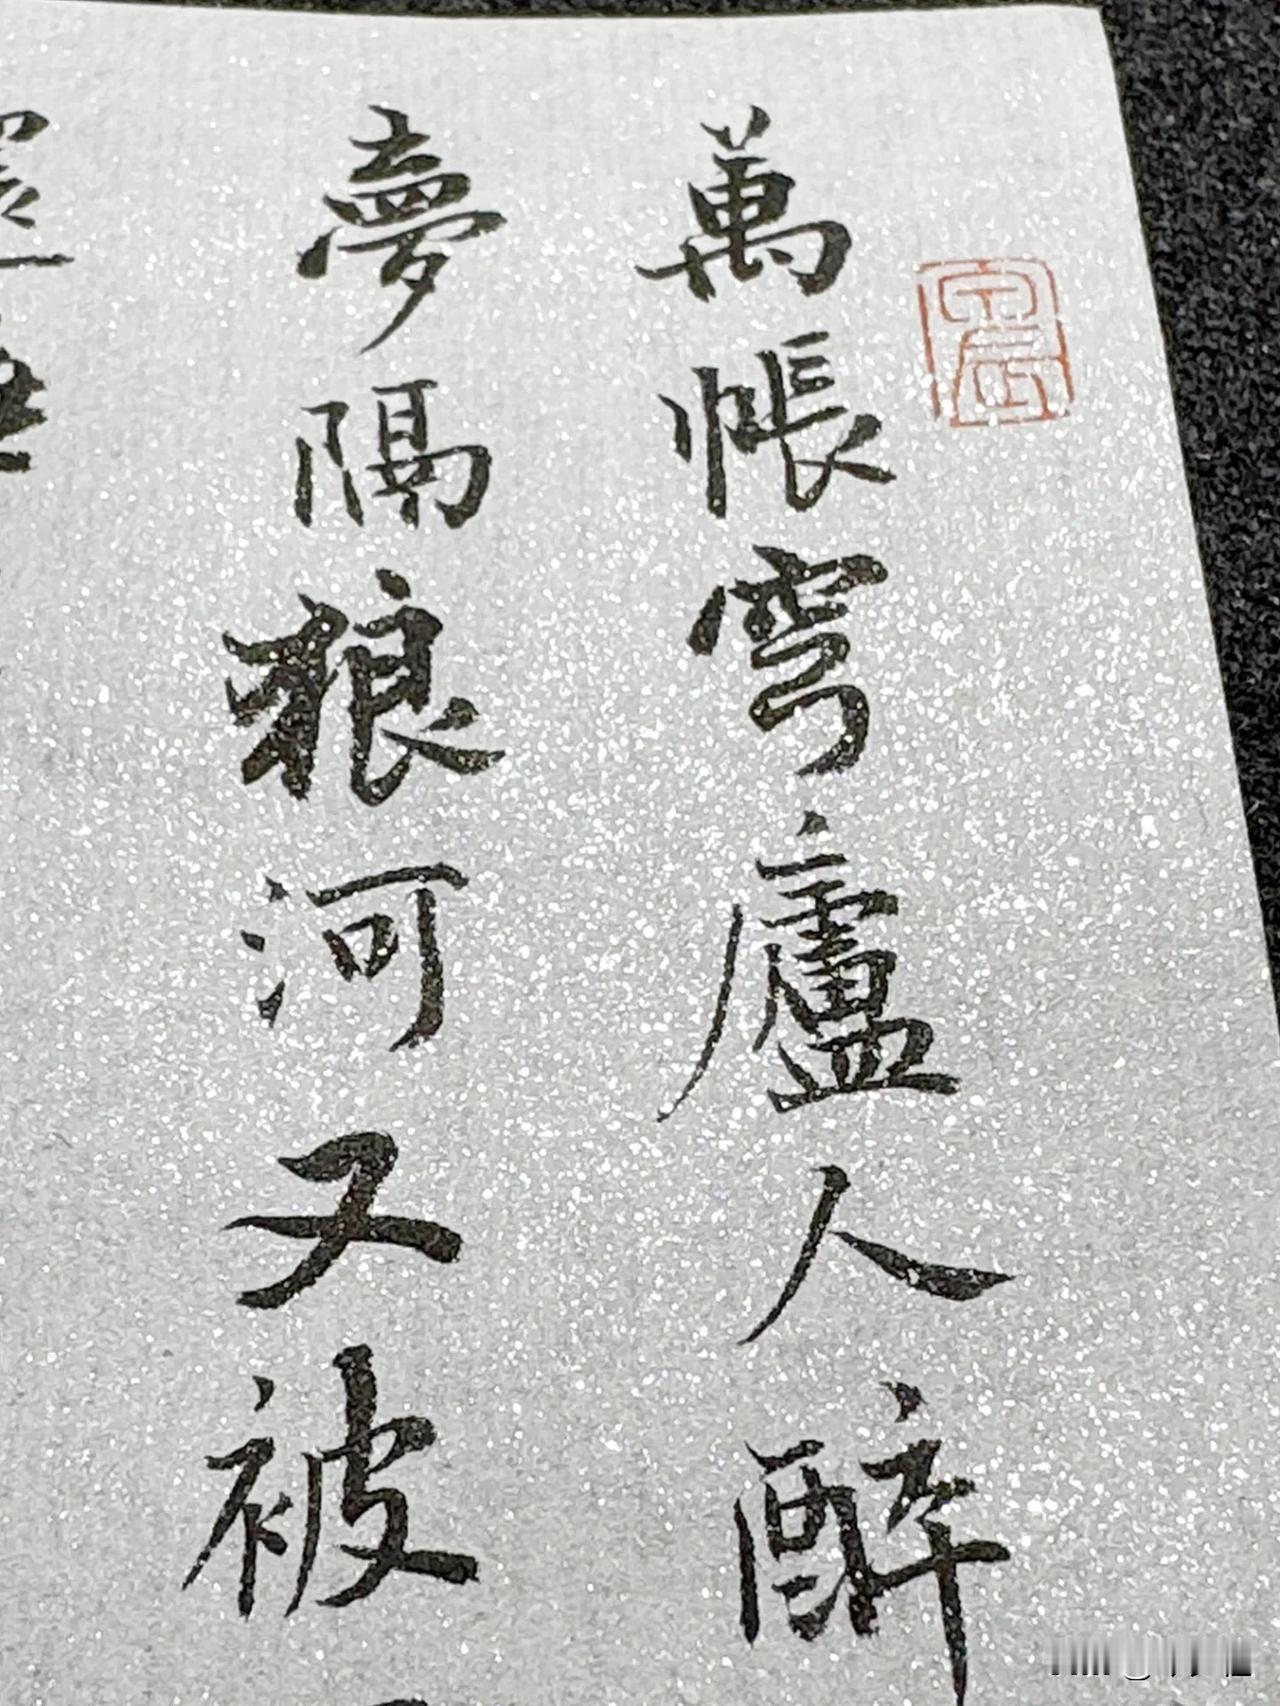 萬帳穹廬人醉
夢隔狼河又被
還